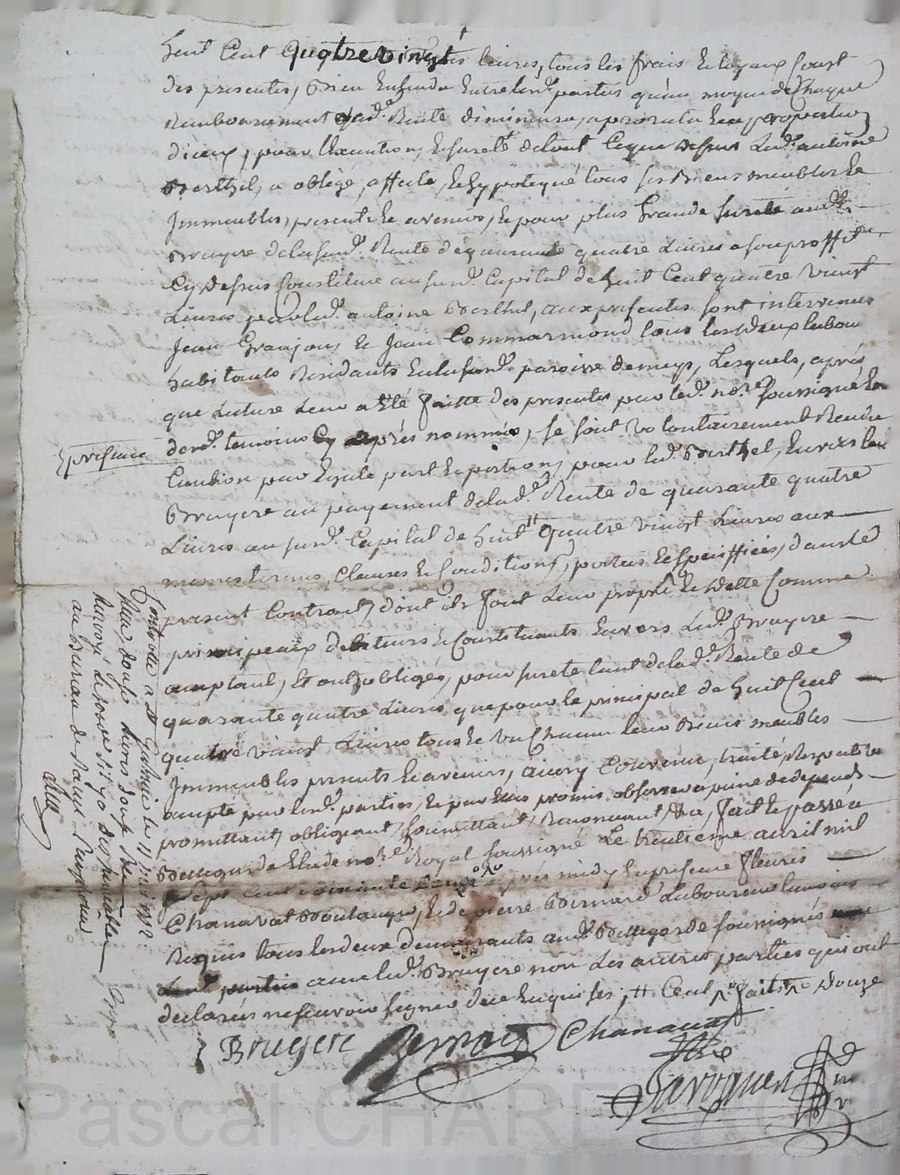 huit Cent quatrevingt livres, tous les frais Et loyaux Coust
des presentes, Bien Entendu Entre les d. parties qu'au moyen de Chaque
Remboursement lad. Rente diminuera, a prorata Et a proportion
diceux, pour l'Execution, Et sureté detout Ceque dessus Led. antoine
Berthel, a obligé, affecté, Et hypotequé tous ses Biens meubles Et
Immeubles, presents Et avenirs, Et pour plus Grande sureté aud.
Bruyere delasusd. Rente dequarante quatre Livres a son proffit
Cy dessus Constituée au susd. Capital de huit Cent quatre vingt
Livres par led. antoine Berthel, aux presentes sont intervenus
Jean Granjon, Et Jean Commarmond tous Lesdeux
habitants Residants Enlasusd. paroisse demeys, Lesquels, après
que Lecture Leur a Eté faitte des presentes par led. no.re soussigné En
presence
desd. temoins Cy après nommés, se sont volontairement Rendu
Caution pour Egale part Et portion, pour led. Berthel, Envers led.
Bruyere au payement delad. Rente de quarante quatre
Livres au susd. Capital de huit Ct quatre vingt Livres aux
mesmes termes, Clauses Et Conditions, portées Et speciffiées, dans le
present Contrat, dont ils font Leur propre Et dette Comme
principaux debiteurs Et Constituants Envers Led. Bruyere
acceptant, Et ont obligés, pour sureté tant delad. Rente de
quarante quatre Livres que pour le principal de huit Cent
quatre vingt Livres tous Et un Chacun leurs Biens meubles
Immeubles presents Et avenirs, ainsy Convenu, traité, Respectivement
accepté par lesd. parties, Et par Elles promis observer a peine de depends
promettant, obligeant, soumettant, Renonçant, &a, fait Et passé à
Bellegarde Etude no.re Royal soussigné Le trentieme avril mil
sept cent soixante douze après midy En presence fleury
Chanavat Boulanger, Et de pierre Bernard Laboureur temoins
Requis tous lesdeux demeurants aud. Bellegarde soussignés
avec led. Bruyere non Les autres parties qui ont
declarés nesçavoir signer dece Enquis
Bruyere Bernard Chanavat
Controllé a St Galmier le 11 mai 1772
Reçu douze livres douze sols
au Bureau de